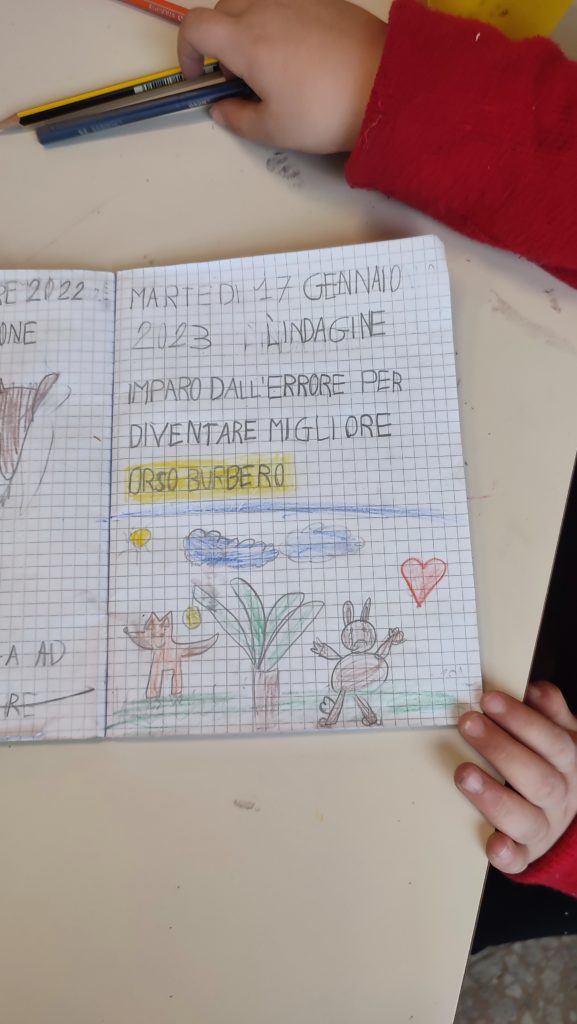 RE 2022
ONE
A AD
RE
MARTEDI 17 GENNAIO
2023 L'INDAGINE
IMPARO DALL'ERRORE PER
DIVENTARE MIGLIORE
ORSO BURBERO